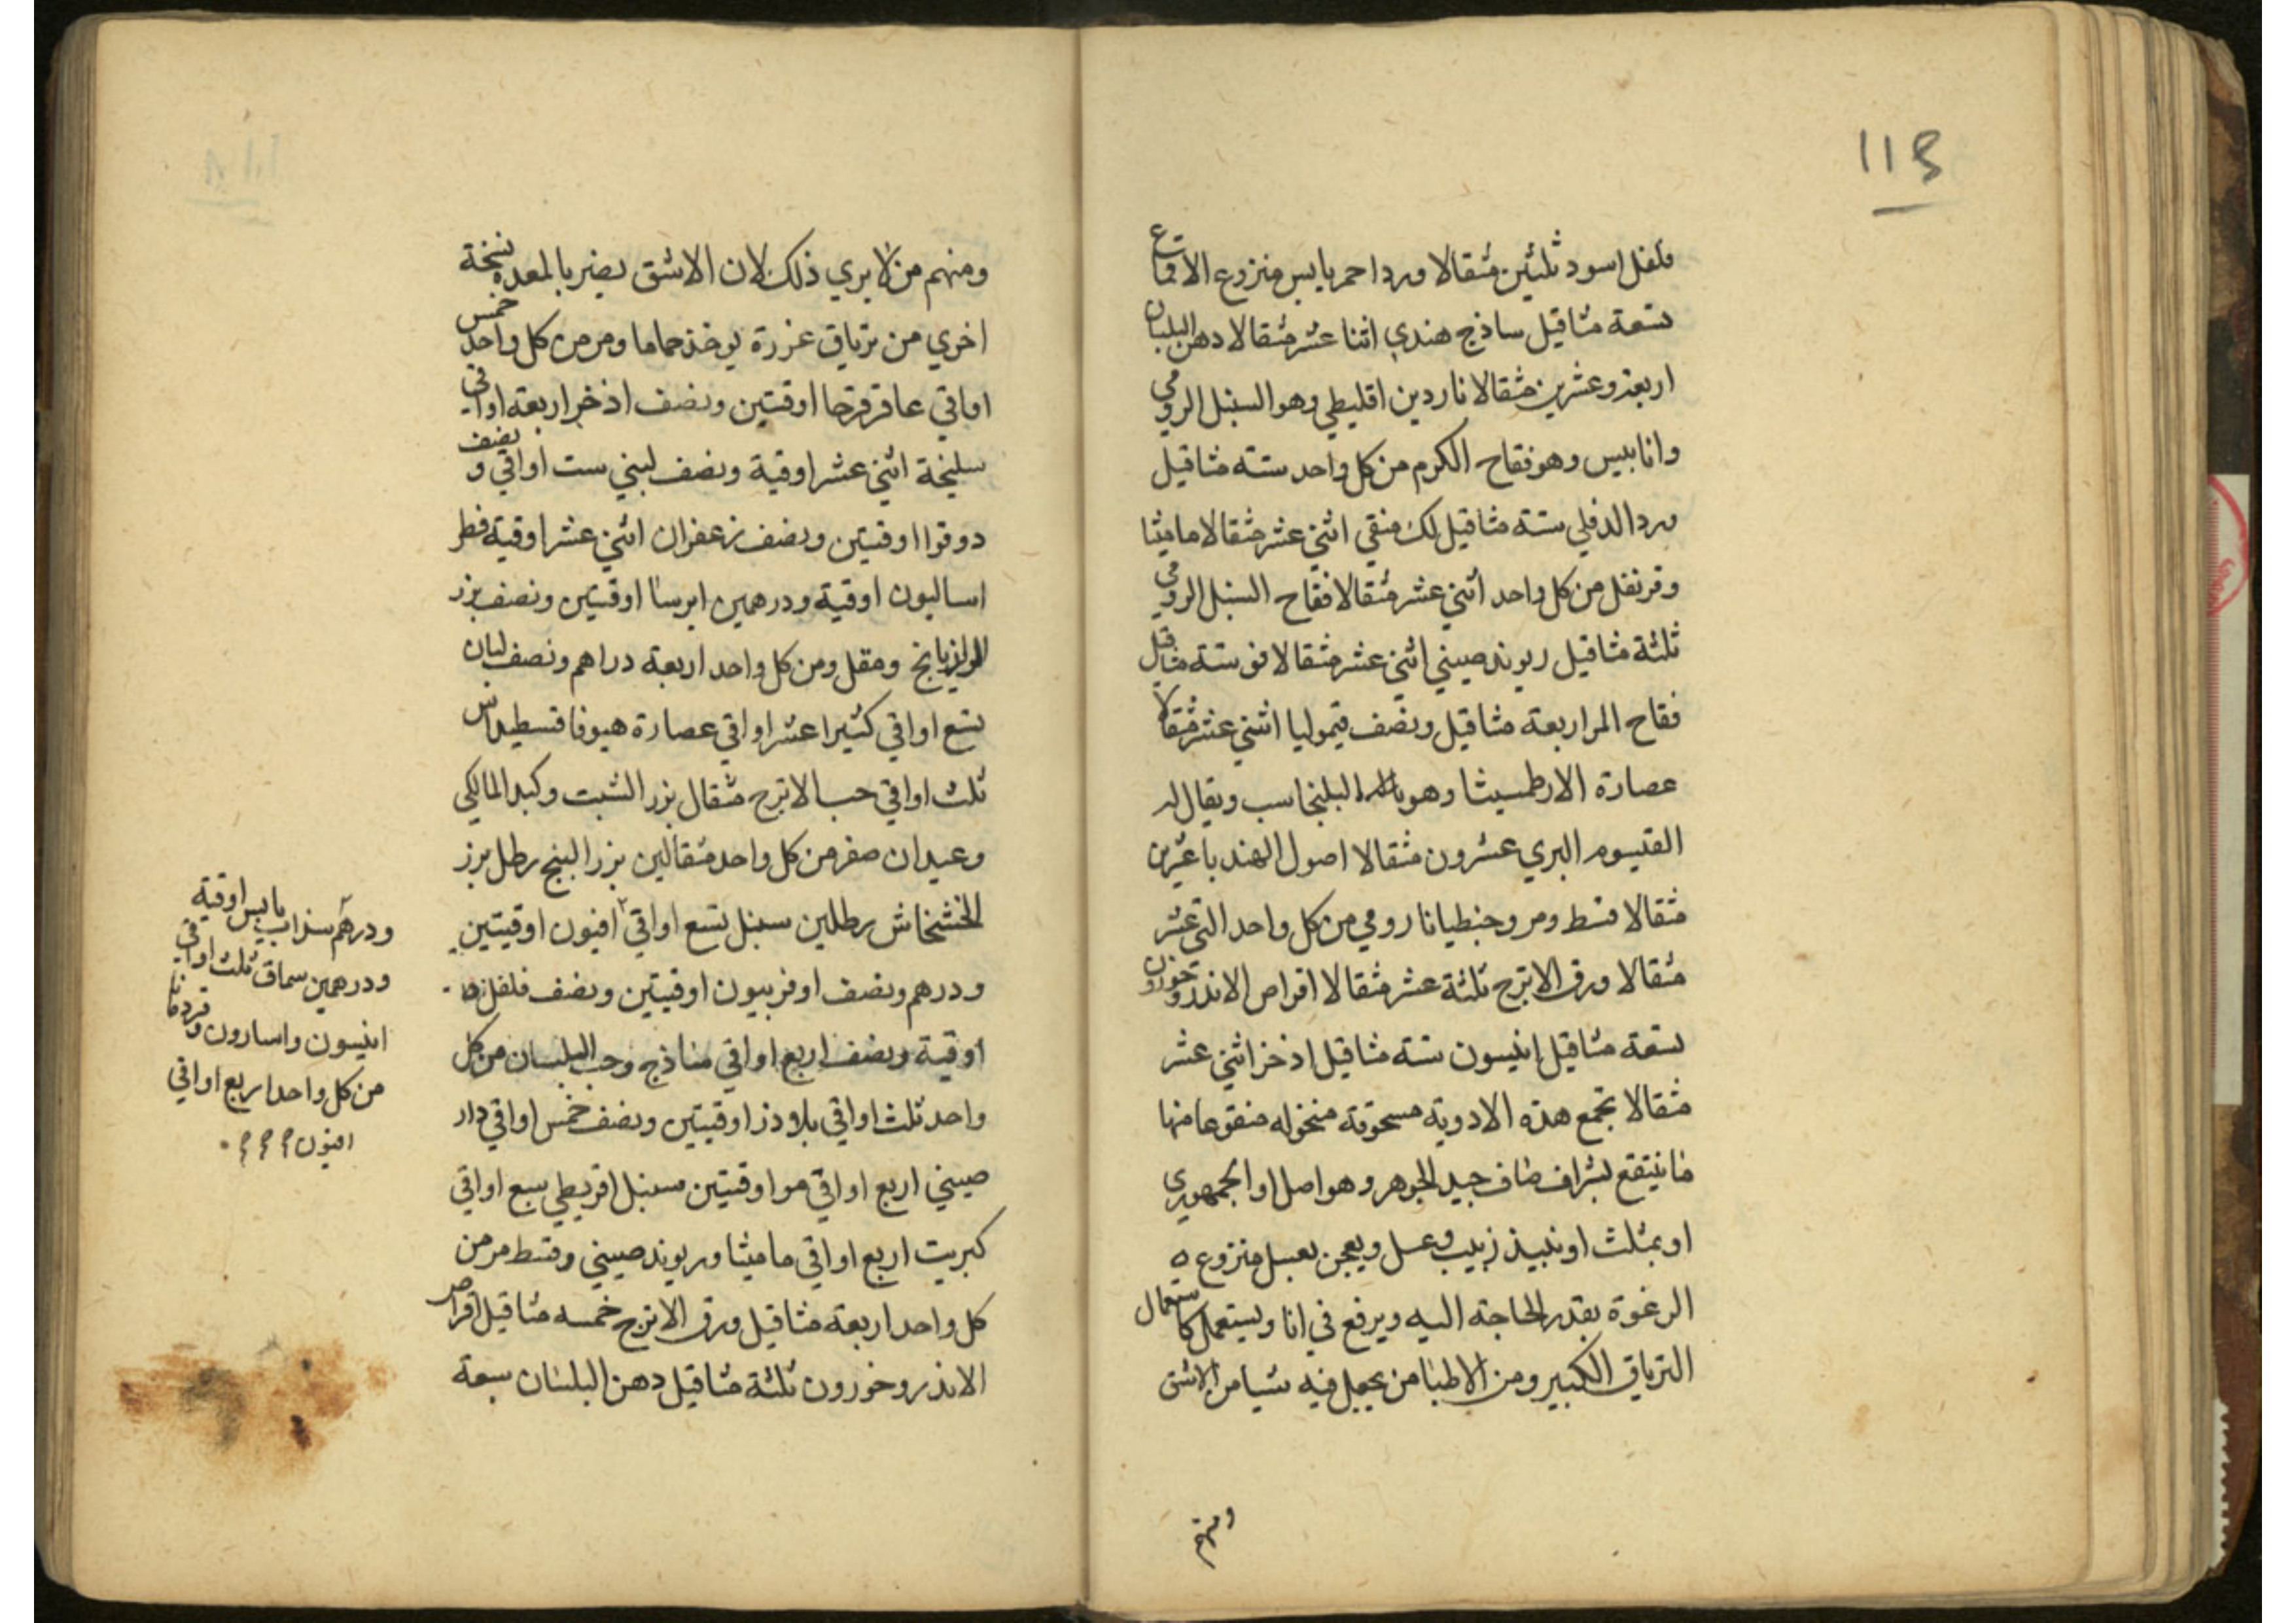 113
فلفل اسود ثلثين مثقالا ورد احمر يابس منزوع الاقماع
تسعة مثاقيل ساذج هندي اثنا عشر مثقالا دهن البلسان
اربعة وعشرين مثقالا ناردين اقليطي وهو السنبل الرومي
وانابيس وهو فقاح الكرم من كل واحد ستة مثاقيل
ورد الدفلي ستة مثاقيل لك منقي اثني عشر مثقالا ماميثا
وقرنفل من كل واحد اثني عشر مثقالا فقاح السنبل الرومي
ثلثة مثاقيل ريوند صيني اثني عشر مثقالا فو ستة مثاقيل
فقاح المر اربعة مثاقيل ونصف قيموليا اثني عشر مثقالا
عصارة الارطميسثا وهو البلنجاسب ويقال له
القيسوم البري عشرون مثقالا اصول الهندبا عشرين
مثقالا قسط ومر وجنطيانا رومي من كل واحد اثني عشر
مثقالا ورق الاترج ثلثة عشر مثقالا اقراص الاندروخورون
تسعة مثاقيل انيسون ستة مثاقيل اذخر اثني عشر
مثقالا تجمع هذه الادوية مسحوقة منخوله منقوعا منها
ما ينتقع بشراب صاف جيد الجوهر وهو اصل او الجمهوري
او بمثلث او نبيذ زبيب وعسل ويعجن بعسل منزوع ه
الرغوة بقدر الحاجة اليه ويرفع في انا ويستعمل كاستعمال
الترياق الكبير ومن الاطبا من يجعل فيه شيا من الاشق
ومنهم
ومنهم من لا يري ذلك لان الاشق يضر بالمعده نسخة
اخري من ترياق عزرة يوخذ حماما ومر من كل واحد خمس
اواقي عاقرقرحا اوقيتين ونصف اذخر اربعة اواقي
سليخة اثني عشر اوقية ونصف لبني ست اواقي ونصف
دوقوا اوقيتين ونصف زعفران اثني عشر اوقية فطر
اساليون اوقية ودرهمين ايرسا اوقيتين ونصف بزر
الرازيانج ومقل ومن كل واحد اربعة دراهم ونصف لبان
تسع اواقي كثيرا عشر اواقي عصارة هيوفاقسطيداس
ثلث اواقي حب الاترج مثقال بزر الشبت وكبد المالكي
وعيدان صفر من كل واحد مثقالين بزر البنج رطل بزر
الخشخاش رطلين سنبل تسع اواقي افيون اوقيتين
ودرهم ونصف اوفربيون اوقيتين ونصف فلفل
اوقية ونصف اربع اواقي ساذج وحب البلسان من كل
واحد ثلث اواقي بلاذر اوقيتين ونصف خمس اواقي دار
صيني اربع اواقي مو اوقيتين سنبل اقريطي سبع اواقي
كبريت اربع اواقي ماميثا وريوند صيني وقسط مر من
كل واحد اربعة مثاقيل ورق الاترج خمسه مثاقيل اقراص
الاندروخورون ثلثة مثاقيل دهن البلسان سبعة
ودرهم سذاب يابس اوقية
ودرهمين سماق ثلث اواقي
انيسون واسارون وقردمانا
من كل واحد اربع اواقي
افيون